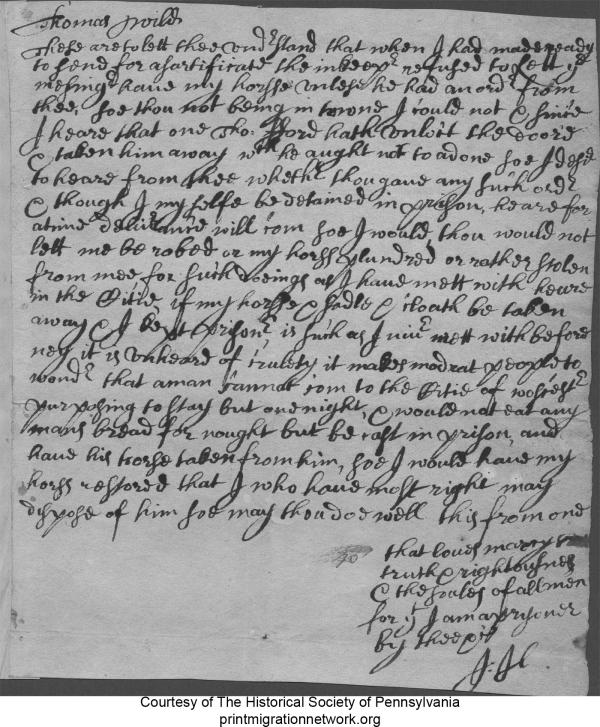 Thomas wild
These are to lett thee undrstand that when I had made ready
to send for a sartificate the inkeepr refused to lett ye
mesingr have my horsse unlese he had an ordr from
thee, soe thou not being in towne I could not & since
I heare that one Tho: fford hath unloct the doore
& taken him away wch he aught not to a done soe I desire
to heare from thee whethr thou gave any such ordr
& though I my selfe be detained in prison, heare for
a time delivrance will com soe I would thou would not
lett me be robed or my horss plundred or rather stolen
from mee for such doeings as I have mett with heare
in the Citie if my horsse & sadle & cloath be taken
away & I kept prisonr is such as I nivr mett with before
ney it is unheard of cruelty it makes modrat people to
wondr that a man cannat com to the Citie of
purposing to stay but one night, & would not eat any
mans bread for nought but be cast in prison, and
have his horse taken from him, soe I would have my
horss restored that I who have most right may
dispose of him soe may thou doe well this from one
that loves marcy
truth & rightousnes
& the soules of all men
for yt I am a prisoner
by thee
40
Courtesy of The Historical Society of Pennsylvania
printmigrationnetwork.org